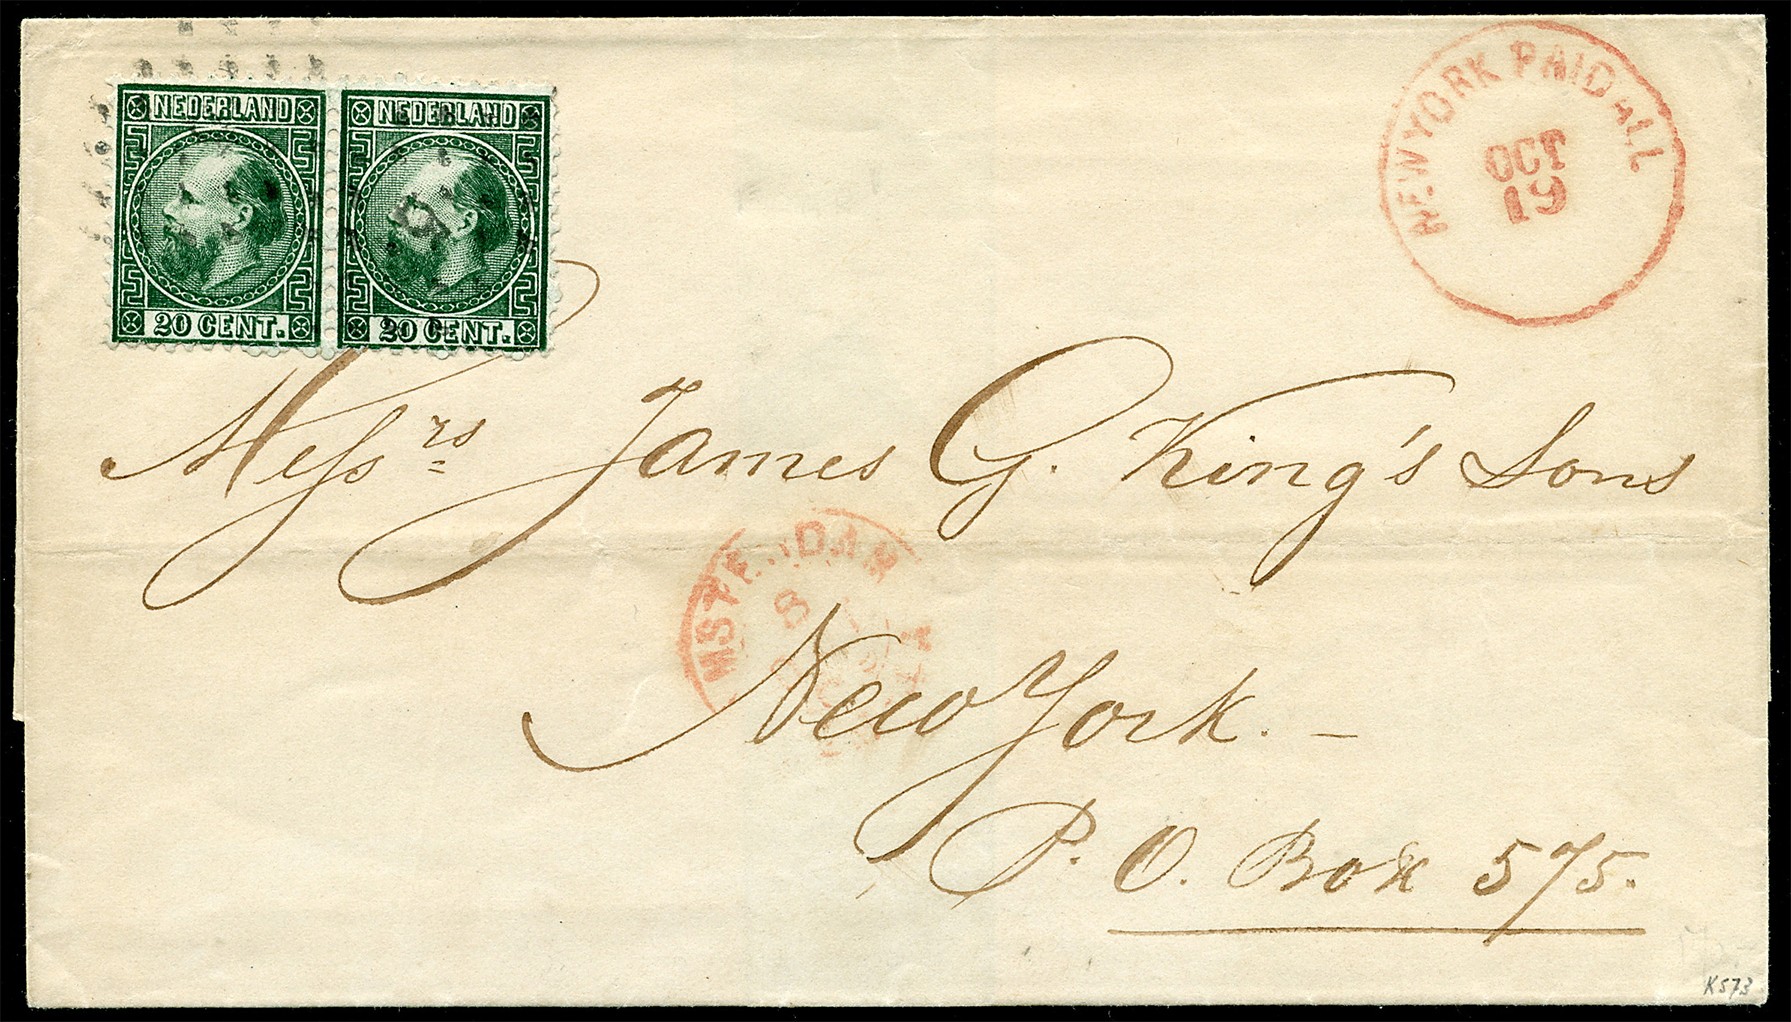 NEDERLAND NEDERLAND
20 CENT. 20 CENT.
NEW YORK PAID ALL
OCT
19
Messrs James G. King's Sons
MSTERDAM
8
New York. –
P. O. Box 575.
K573